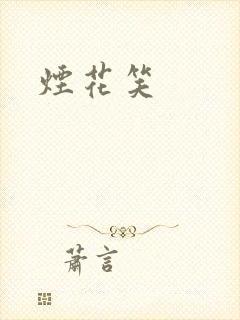 煙花笑
蕭言